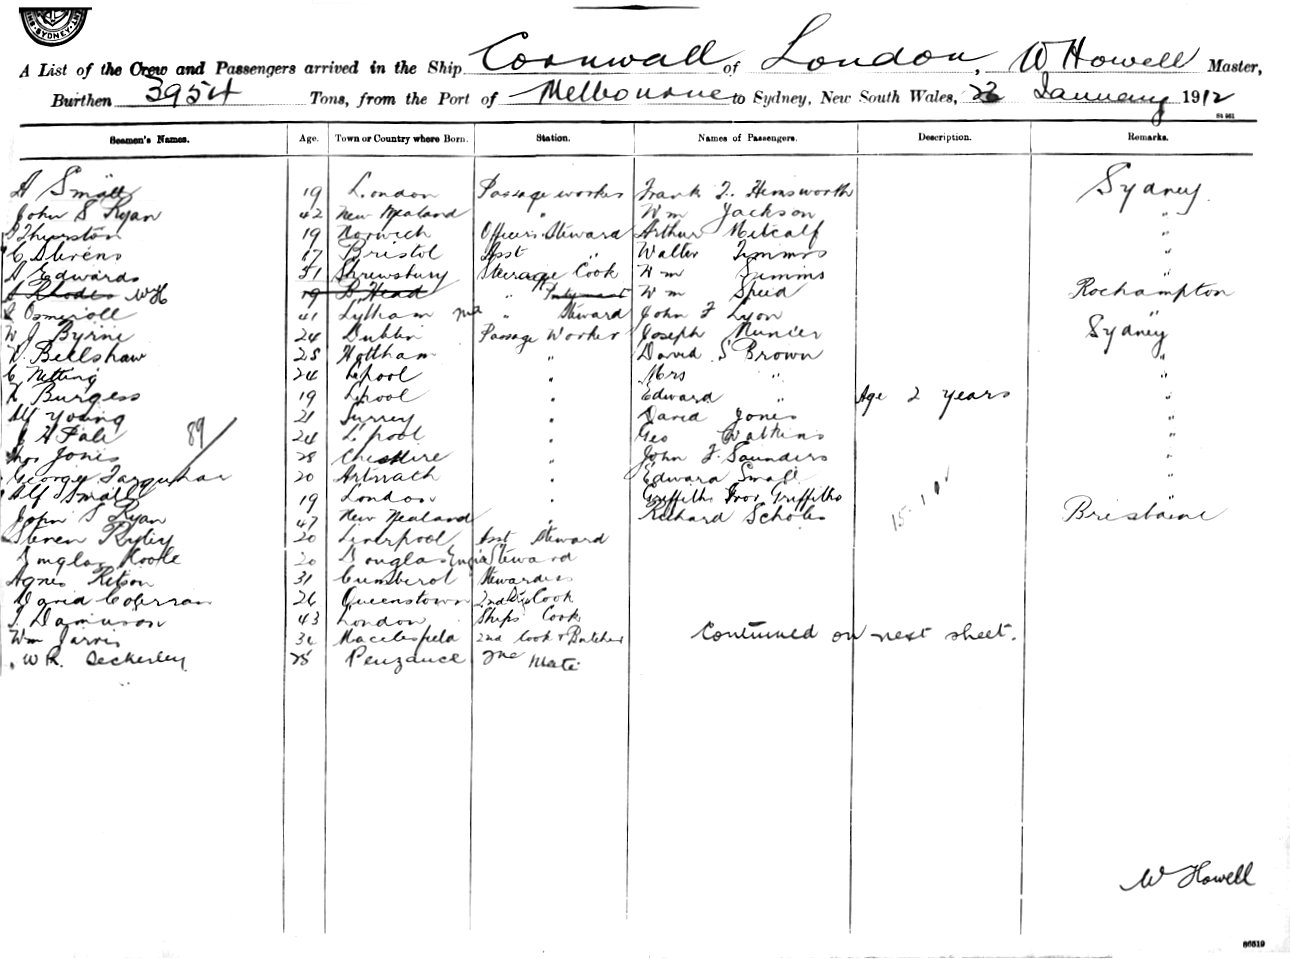 SYDNEY
A List of the Crew and Passengers arrived in the Ship Cornwall of London, W Howell Master,
Burthen 3954 Tons, from the Port of Melbourne to Sydney, New South Wales, 23 January 1912
84 661
Seamen's Names. Age. Town or Country where Born. Station. Names of Passengers. Description. Remarks.
A Small 19 London Passage worker Frank T. Hemsworth Sydney
John S Ryan 42 New Zealand " Wm Jackson "
Thurston 19 Norwich Officers Steward Arthur Metcalf "
C Stevens 17 Bristol Asst " Walter Timms "
A Edwards 51 Shrewsbury Steerage Cook Wm Timms "
A Rhodes WH 19 B. Head " Wm Speed Rockampton
Osmeroll 41 Lytham " Steward John F Lyon "
W J Byrne 24 Dublin Passage Worker Joseph Nunier Sydney
Bellshaw 28 Hottham " David S Brown "
C Netting 24 L'pool " Mrs " "
Burgess 19 L'pool " Edward " Age 2 years "
Alf Young 21 Surrey " David Jones "
J H Fale 89/ 24 L'pool " Geo Watkins "
Thos Jones 28 Cheshire " John F. Saunders "
George Farquhar 20 " Edward Small "
Alf Small 19 London " Griffiths Ivor Griffiths "
John S Ryan 47 New Zealand " Richard Scholes 15.1.01 Brisbane
Steven Ryley 20 Liverpool Asst Steward
Douglas Kootle 20 Douglas Engrs Steward
Agnes Kitson 31 Stewardess
David Cohrran 26 Queenstown 2nd Cook
T. Damison 43 London Ships Cook
Wm Jarvis 34 Macclesfield 2nd Cook & Butcher Continued on next sheet.
W R. Deckerley 28 Penzance 2nd Mate
W Howell
86519